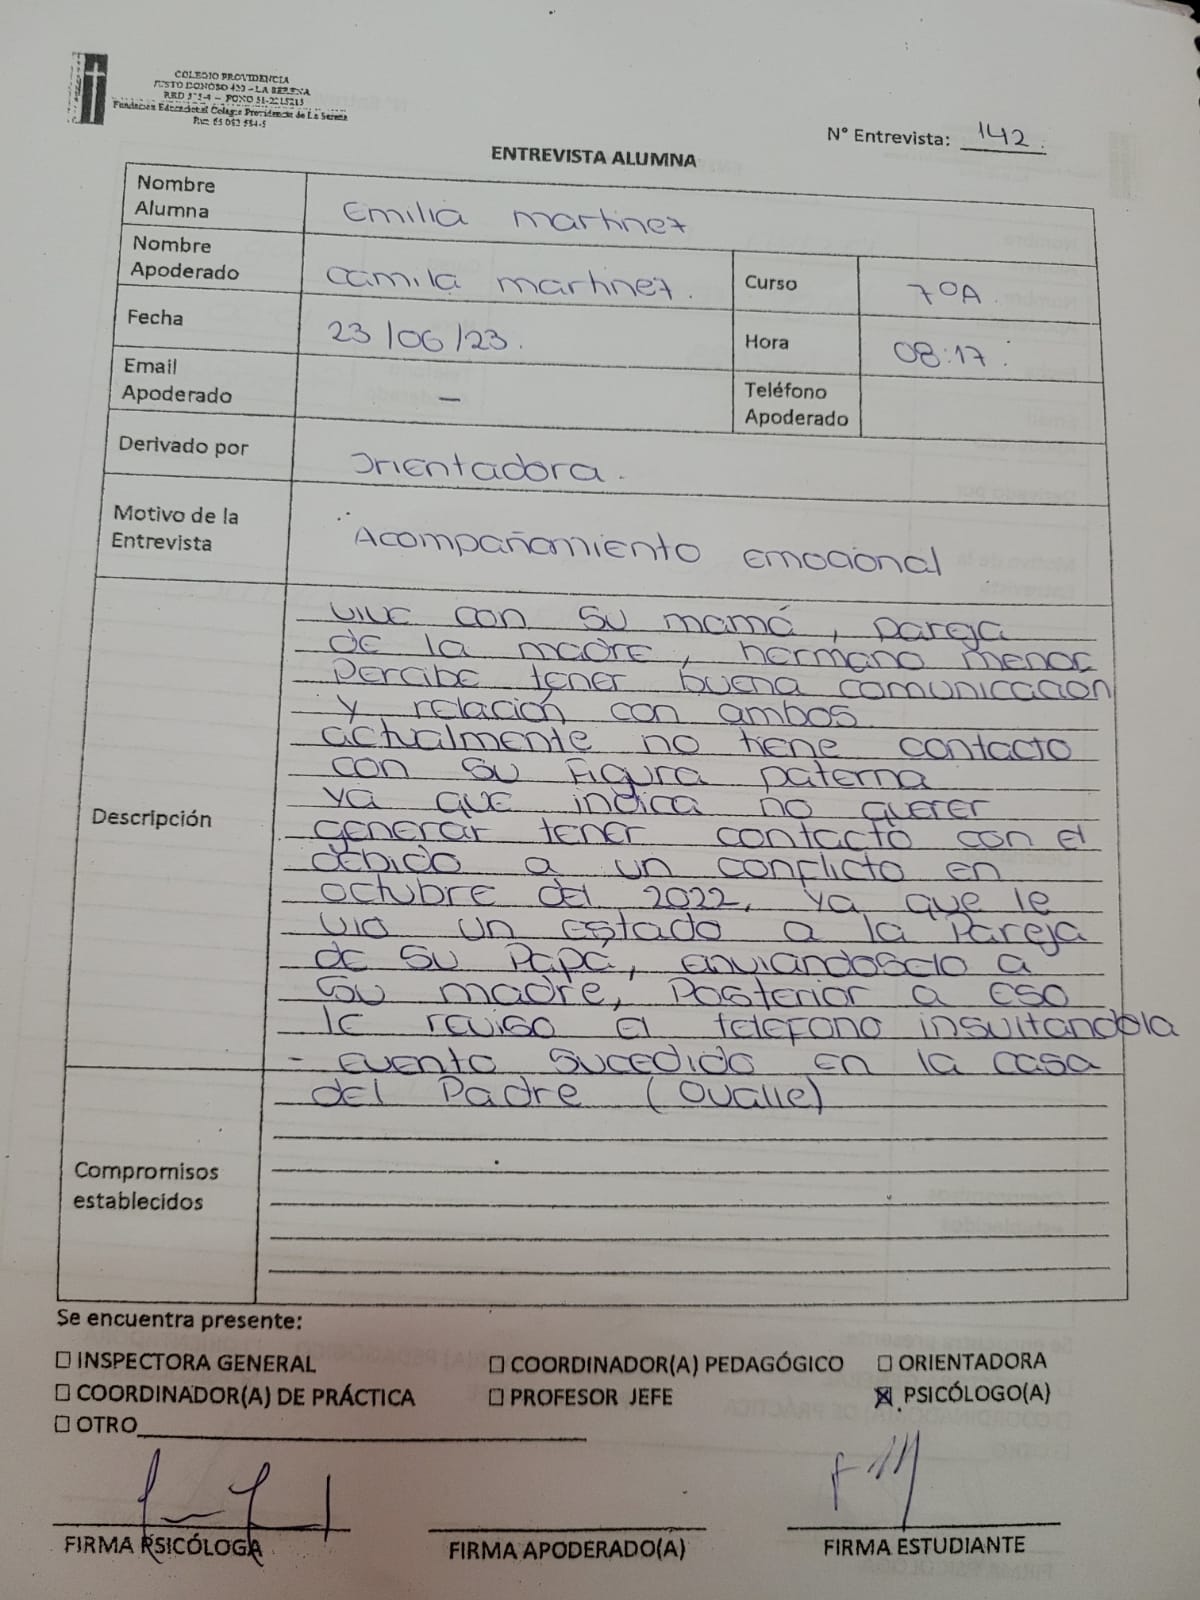 COLEGIO PROVIDENCIA
JUSTO DONOSO 420 – LA SERENA
RRD 575-4 – FONO 51-2215215
Fundación Educacional Colegio Providencia de La Serena
N° Entrevista: 142.
ENTREVISTA ALUMNA
Nombre Alumna Emilia martinez
Nombre Apoderado camila martinez. Curso 7ºA.
Fecha 23/06/23. Hora 08:17.
Email Apoderado – Teléfono Apoderado
Derivado por Orientadora.
Motivo de la Entrevista Acompañamiento emocional
Descripción
vive con su mamá, pareja
de la madre, hermano menor
percibe tener buena comunicación
y relación con ambos
actualmente no tiene contacto
con su figura paterna
ya que indica no querer
generar tener contacto con el
debido a un conflicto en
octubre del 2022, ya que le
vio un estado a la pareja
de su Papá, enviandoselo a
su madre, Posterior a eso
le reviso el telefono insultandola
- evento sucedido en la casa
del Padre (Ovalle)
Compromisos establecidos
Se encuentra presente:
☐ INSPECTORA GENERAL ☐ COORDINADOR(A) PEDAGÓGICO ☐ ORIENTADORA
☐ COORDINADOR(A) DE PRÁCTICA ☐ PROFESOR JEFE ☒ PSICÓLOGO(A)
☐ OTRO
FIRMA PSICÓLOGA FIRMA APODERADO(A) FIRMA ESTUDIANTE